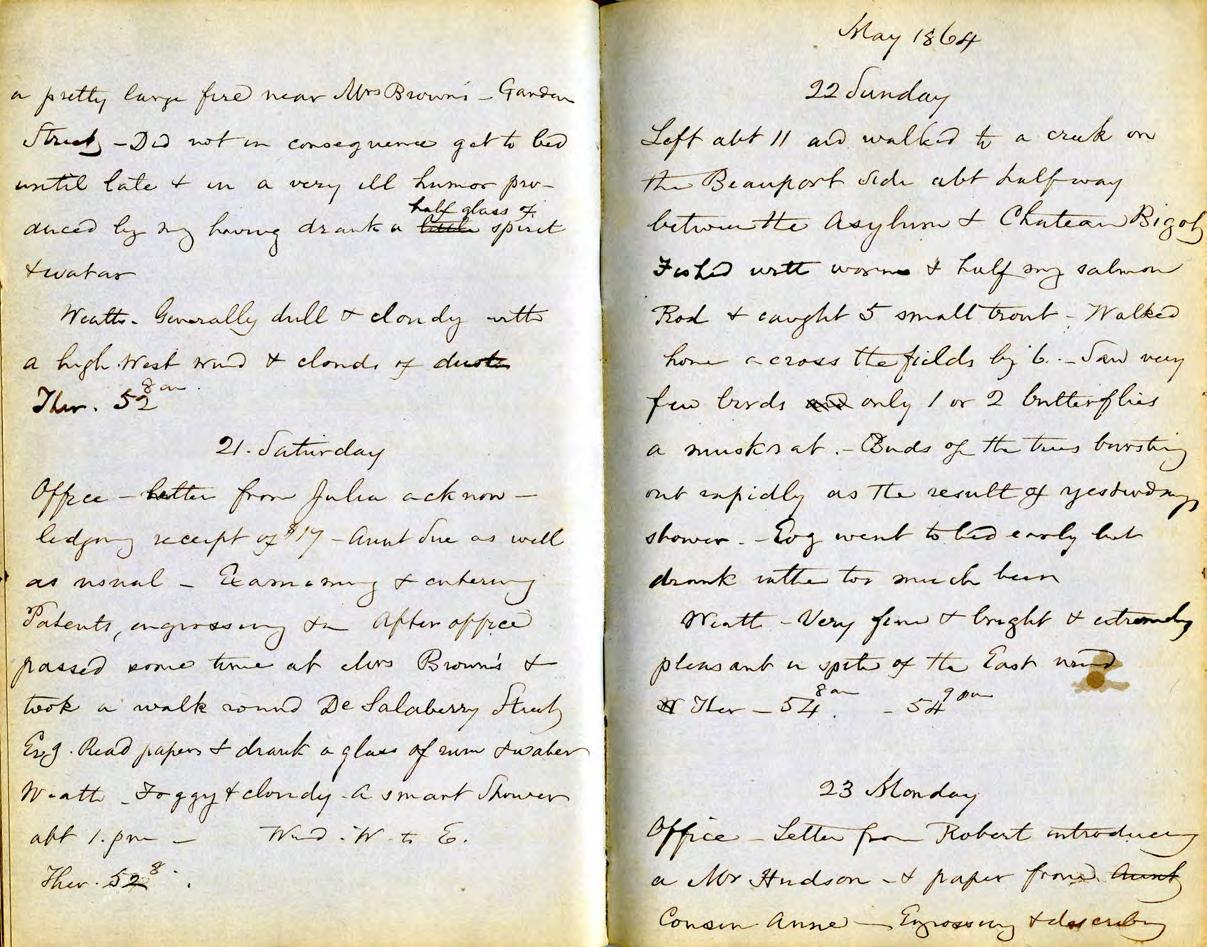 a pretty large fire near Mrs Brown's – Garden
Street – Did not in consequence get to bed
until late & in a very ill humor pro-
duced by my having drank a little half glass of spirit
& water
Weath. Generally dull & cloudy with
a high West wind & clouds of dust
Ther. 52 8 am
21. Saturday
Office – Letter from Julia acknow-
ledging receipt of $17 – Aunt Sue as well
as usual – Examining & entering
Patents, engrossing &c After office
passed some time at Mrs Brown's &
took a walk round De Salaberry Street
Evg. Read papers & drank a glass of rum & water
Weath – Foggy & cloudy. A smart Shower
abt 1. pm – Wind. W. to E.
Ther. 52 8.
May 1864
22 Sunday
Left abt 11 and walked to a creek on
the Beauport side abt half way
between the Asylum & Chateau Bigot
Fished with worms & half my salmon
Rod & caught 5 small trout – Walked
home across the fields by 6. – Saw very
few birds and only 1 or 2 butterflies
a muskrat. – Buds of the trees bursting
out rapidly as the result of yesterdays
shower. – Evg went to bed early but
drank rather too much beer
Weath – Very fine & bright & extremely
pleasant in spite of the East wind
Ther – 54 8 am. – 54 9 pm
23 Monday
Office – Letter from Robert introducing
a Mr Hudson – & paper from Aunt
Cousin Anne – Engrossing & describing